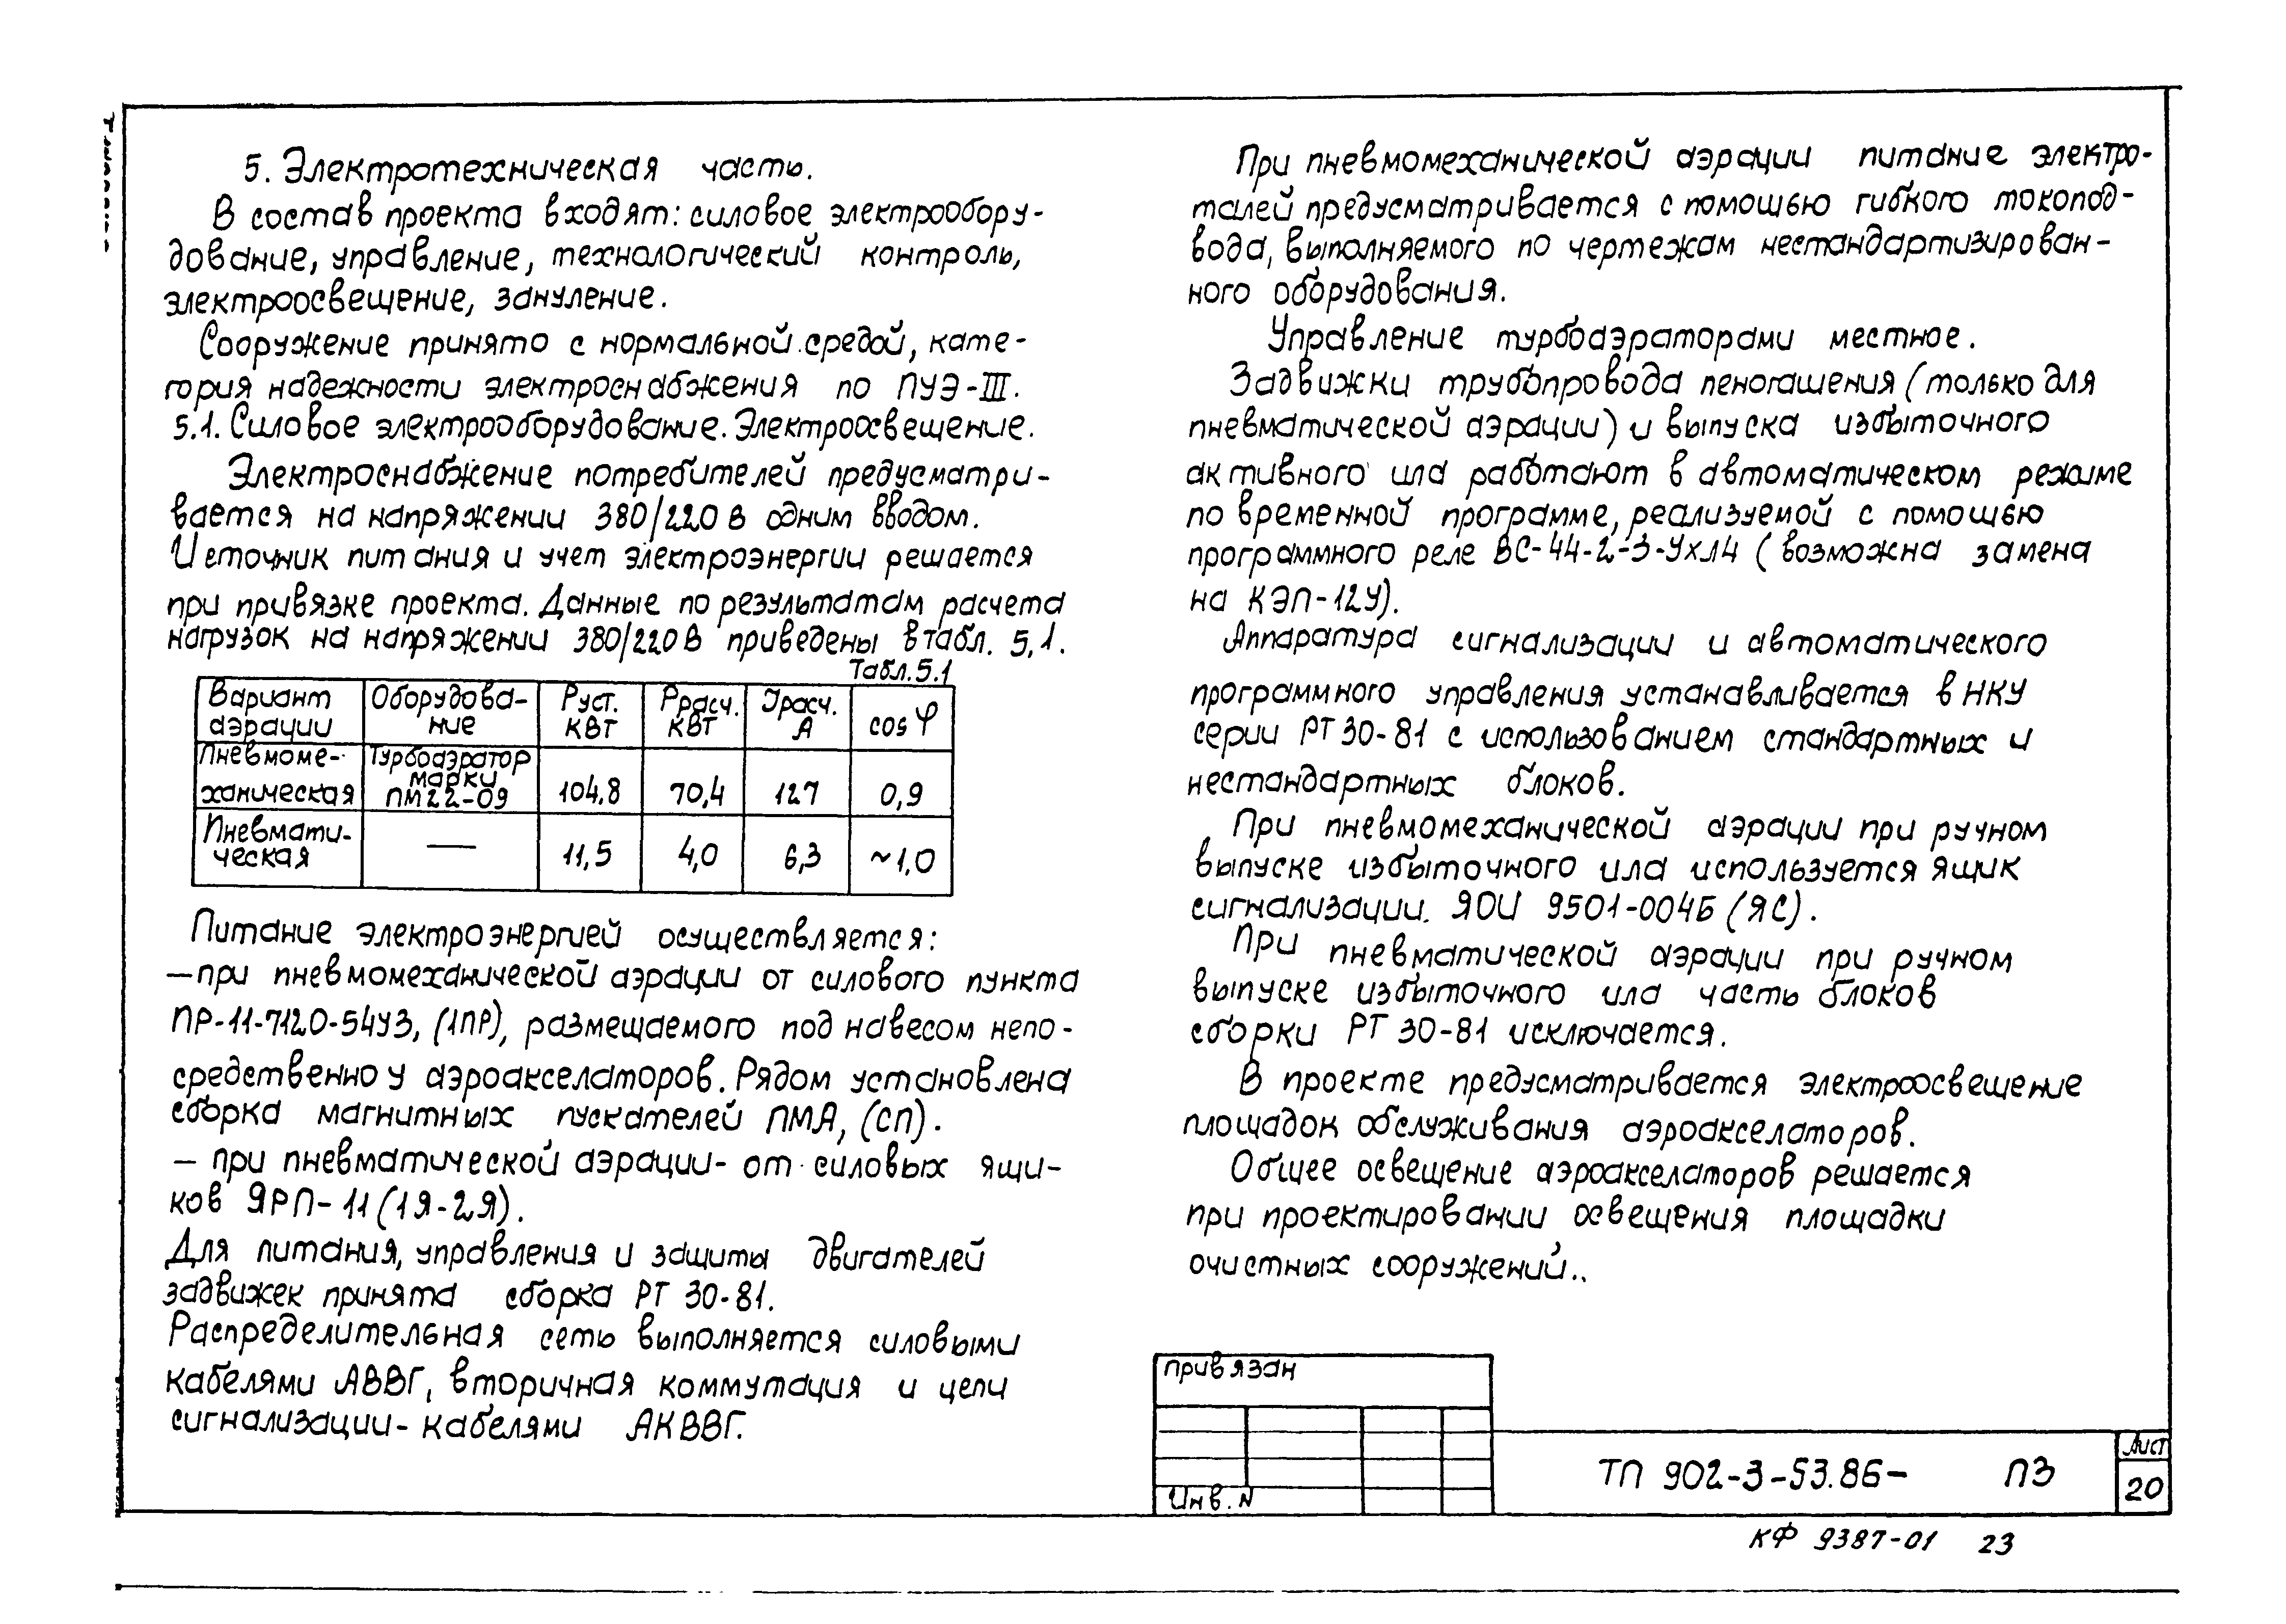 5. Электротехническая часть.
В состав проекта входят: силовое электрообору-
дование, управление, технологический контроль,
электроосвещение, зануление.
Сооружение принято с нормальной средой, кате-
гория надежности электроснабжения по ПУЭ-III.
5.1. Силовое электрооборудование. Электроосвещение.
Электроснабжение потребителей предусматри-
вается на напряжении 380/220 в одним вводом.
Источник питания и учет электроэнергии решается
при привязке проекта. Данные по результатам расчета
нагрузок на напряжении 380/220 В приведены в табл. 5.1.
Табл. 5.1
Вариант аэрации | Оборудова-ние | Руст. КВт | Ррасч. КВт | Iрасч. А | cos φ
Пневмоме-ханическая | Турбоаэратор марки ПМ22-09 | 104,8 | 70,4 | 127 | 0,9
Пневмати-ческая | — | 11,5 | 4,0 | 6,3 | ~1,0
Питание электроэнергией осуществляется:
— при пневмомеханической аэрации от силового пункта
ПР-11-7120-54У3, (1ПР), размещаемого под навесом непо-
средственно у аэроакселаторов. Рядом установлена
сборка магнитных пускателей ПМА, (СП).
— при пневматической аэрации- от силовых ящи-
ков ЯРП-11 (1Я-2Я).
Для питания, управления и защиты двигателей
задвижек принята сборка РТ 30-81.
Распределительная сеть выполняется силовыми
кабелями АВВГ, вторичная коммутация и цепи
сигнализации- кабелями АКВВГ.
При пневмомеханической аэрации питание электро-
талей предусматривается с помощью гибкого токопод-
вода, выполняемого по чертежам нестандартизирован-
ного оборудования.
Управление турбоаэраторами местное.
Задвижки трубопровода пеногашения (только для
пневматической аэрации) и выпуска избыточного
активного ила работают в автоматическом режиме
по временной программе, реализуемой с помощью
программного реле ВС-44-2-3-УХЛ4 (возможна замена
на КЭП-12У).
Аппаратура сигнализации и автоматического
программного управления устанавливается в НКУ
серии РТ 30-81 с использованием стандартных и
нестандартных блоков.
При пневмомеханической аэрации при ручном
выпуске избыточного ила используется ящик
сигнализации. ЯОИ 9501-004Б (ЯС).
При пневматической аэрации при ручном
выпуске избыточного ила часть блоков
сборки РТ 30-81 исключается.
В проекте предусматривается электроосвещение
площадок обслуживания аэроакселаторов.
Общее освещение аэроакселаторов решается
при проектировании освещения площадки
очистных сооружений..
Привязан
Инв. N
ТП 902-3-53.86- ПЗ
Лист
20
КФ 9387-01 23